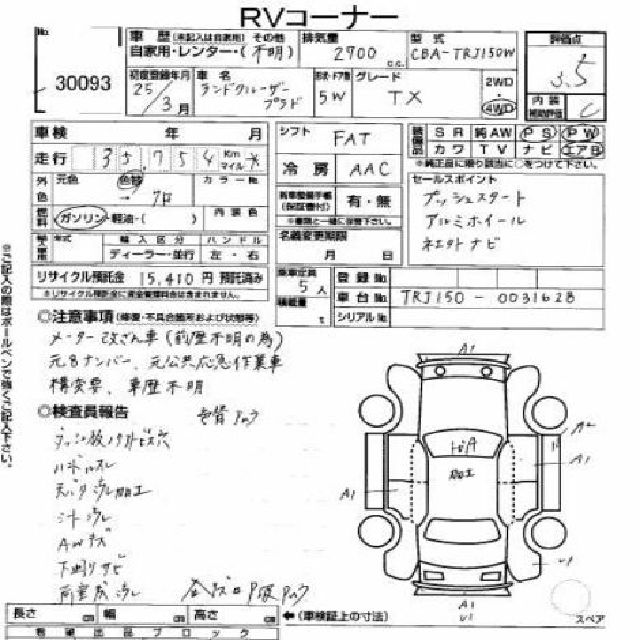 RVコーナー
No.
30093
車歴(未記入は自家用) その他
自家用・レンタ・(不明)
排気量
2700 c.c.
型式
CBA-TRJ150W
評価点
3.5
初度登録年月
25/3月
車名
ランドクルーザー
プラド
形状・ドア数
5W
グレード
TX
2WD
4WD
内装
補助評価
C
車検 年 月
シフト
FAT
装備品
SR 純AW PS PW
カワ TV ナビ エアB
※純正品に限り該当に○をつけて下さい。
走行
35,754 Km
マイル
*
冷房
AAC
外色
元色
色替
カラーNo.
→ クロ
セールスポイント
プッシュスタート
アルミホイール
有・無
※書類と一緒に添替下さい。
燃料
ガソリン・軽油・( )
内装色
名義変更期限
月 日
輸入区分
ハンドル
ディーラー・並行
左・右
リサイクル預託金 15,410円 預託済み
※リサイクル預託金に資金管理料金は含まれます。
乗車定員
5人
積載量
t
登録No.
車台No.
TRJ150-0031628
シリアルNo.
◎注意事項 (修復・不具合箇所および状態等)
メーター改ざん車(前歴不明の為)
元8ナンバー、元公共応急作業車
構変要、車歴不明
◎検査員報告
色替アリ
ハンドルスレ
シート汚レ
AWキズ
下廻りサビ
A1
A2
A1
A1
加工
A1
U1
スペア
長さ cm
幅 cm
高さ cm
←(車検証上の寸法)
※ご記入の際はボールペンで強くご記入下さい。